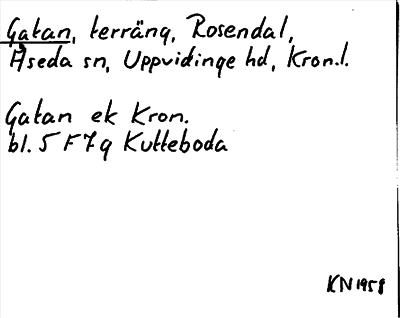 Gatan, terräng, Rosendal,
Åseda sn, Uppvidinge hd, Kron.l.
Gatan ek Kron.
bl. 5 F 7 g Kulleboda
KN 1958